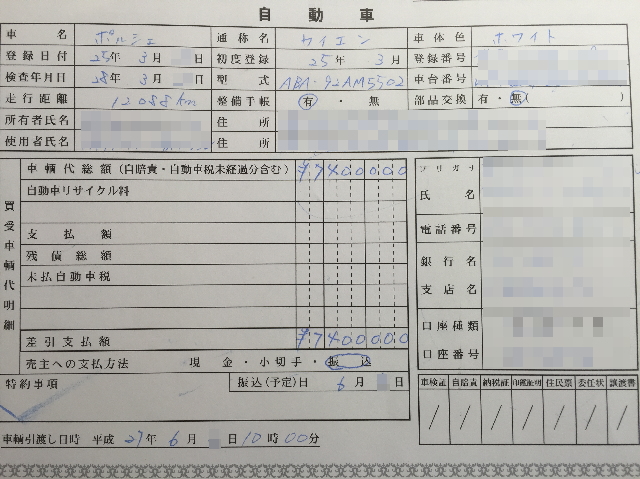 自動車
車名 ポルシェ 通称名 カイエン 車体色 ホワイト
登録日付 25年 3月 日 初度登録 25年 3月 登録番号
検査年月日 28年 3月 日 型式 ABA-92AM5502 車台番号
走行距離 12088km 整備手帳 有・無 部品交換 有・無( )
所有者氏名 住所
使用者氏名 住所
買受車輌代明細
車輌代総額(自賠責・自動車税未経過分含む) ¥7400000
自動車リサイクル料
支払額
残債総額
未払自動車税
差引支払額 ¥7400000
売主への支払方法 現金・小切手・振込
特約事項 振込(予定)日 6月 日
車輌引渡し日時 平成 27年 6月 日 10時00分
フリガナ
氏名
電話番号
銀行名
支店名
口座種類
口座番号
車検証 自賠責 納税証 印鑑証明 住民票 委任状 譲渡書
/ / / / / / /